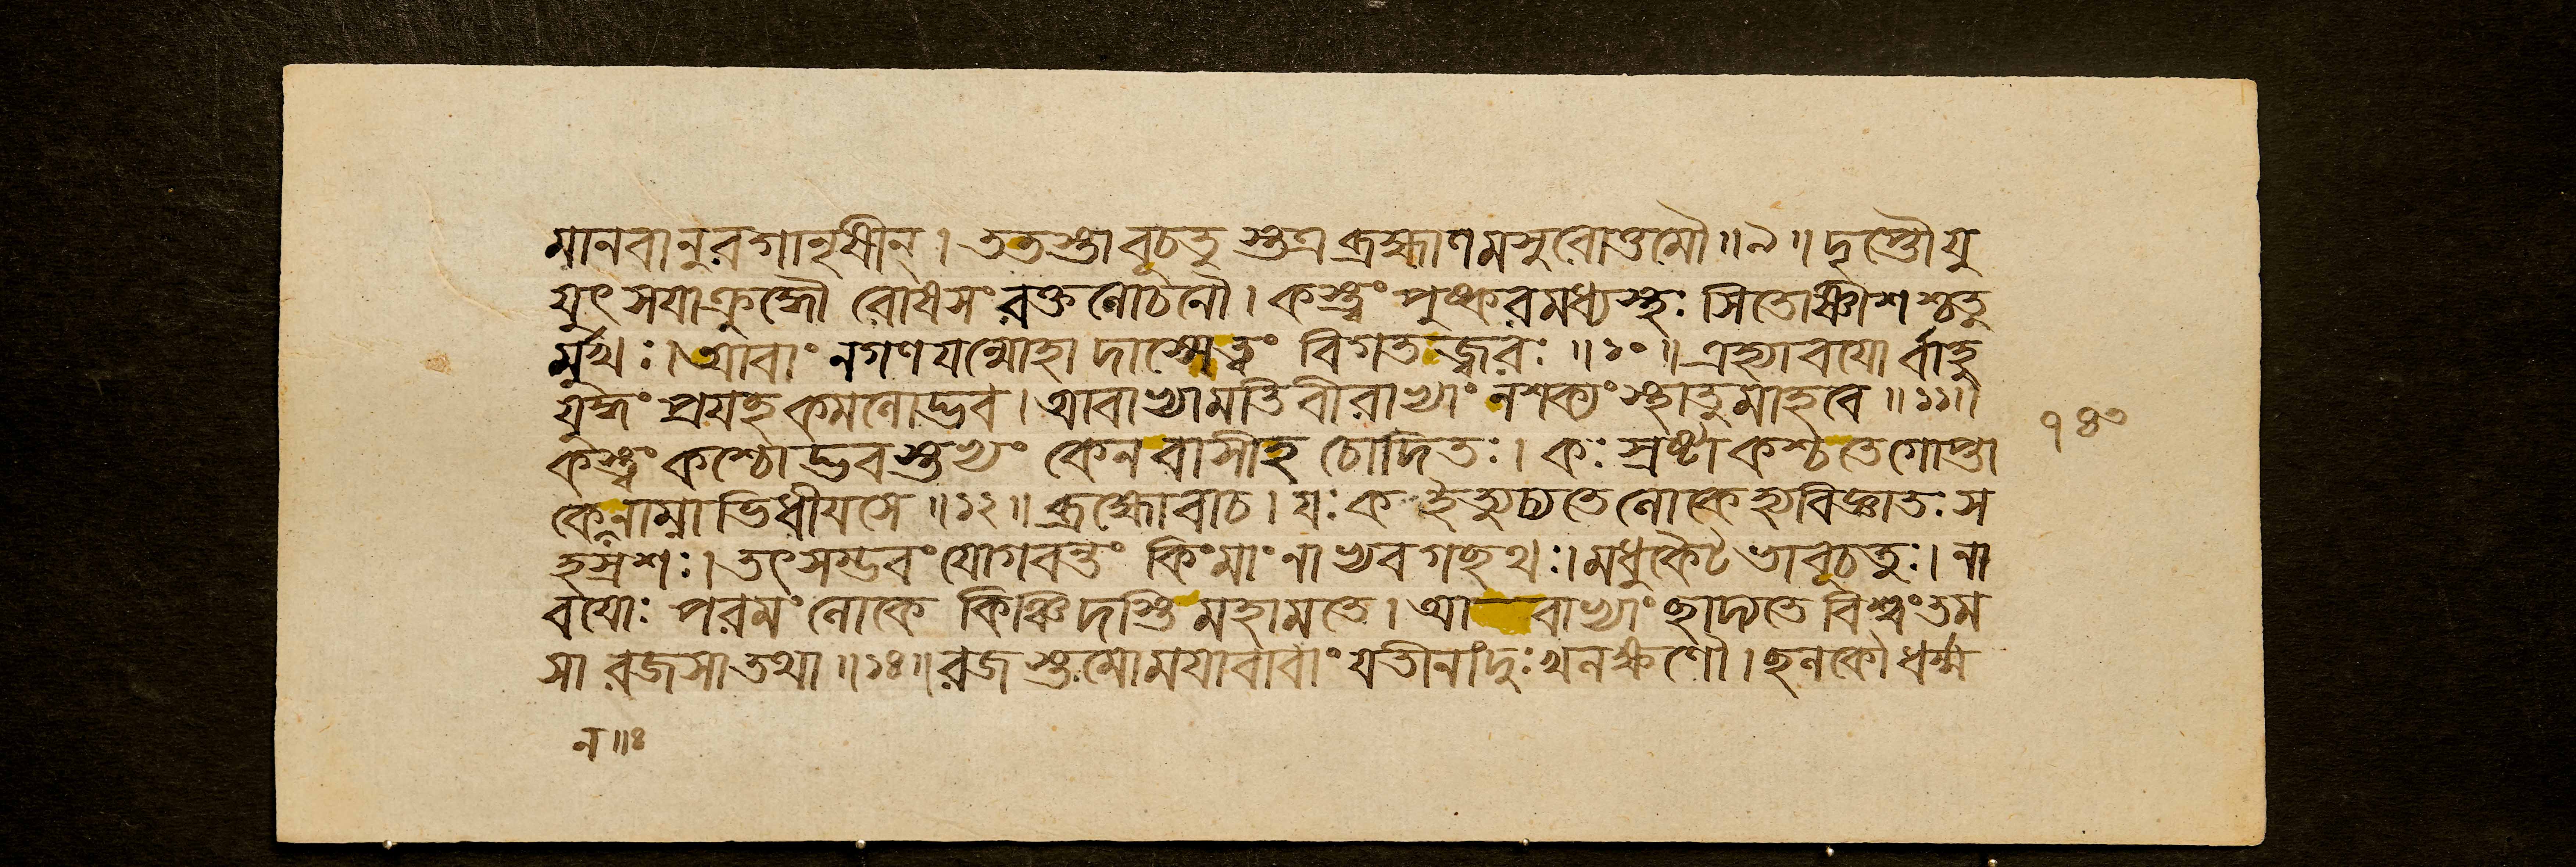 মানবানুরগানৃষীন্। ততস্তাবূচতু স্তত্র ব্রহ্মাণমসুরোত্তমৌ॥৯॥ দৃপ্তৌ যু
যুৎসয়া ক্রুদ্ধৌ রোষসংরক্তলোচনৌ। কস্ত্বং পুষ্করমধ্যস্থঃ সিতোষ্ণীশশ্চতু
র্মুখঃ। আবাং নগণয়ন্মোহা দাস্সেত্বং বিগতজ্বরঃ॥১০॥ এহ্যাবয়ো র্বাহু
যুদ্ধং প্রয়চ্ছ কমলোদ্ভব। আবাভ্যামতিবীরাভ্যাং নশক্যং স্থাতুমাহবে॥১১॥
কস্ত্বং কশ্চোদ্ভবস্তুভ্যং কেনবাসীহ চোদিতঃ। কঃ স্রষ্টা কশ্চতেগোপ্তা
কেনাম্নাভিধীয়সে॥১২॥ ব্রহ্মোবাচ। য়ঃ ক ইত্যুচ্যতেলোকেহ্যবিজ্ঞাতঃ স
হস্রশঃ। তৎসম্ভবং য়োগবন্তং কিং মাং নাভ্যবগছথঃ। মধুকৈটভাবূচতুঃ। না
বয়োঃ পরমং লোকে কিঞ্চিদস্তি মহামতে। আ বাভ্যাং ছাদ্যতে বিশ্বং তম
সা রজসা তথা॥১৪॥ রজ স্তমোময়াবাবাং য়তীনাং দুঃখলক্ষণৌ। ছলকৌ ধর্ম্ম
ল॥ঃ
৭৪০